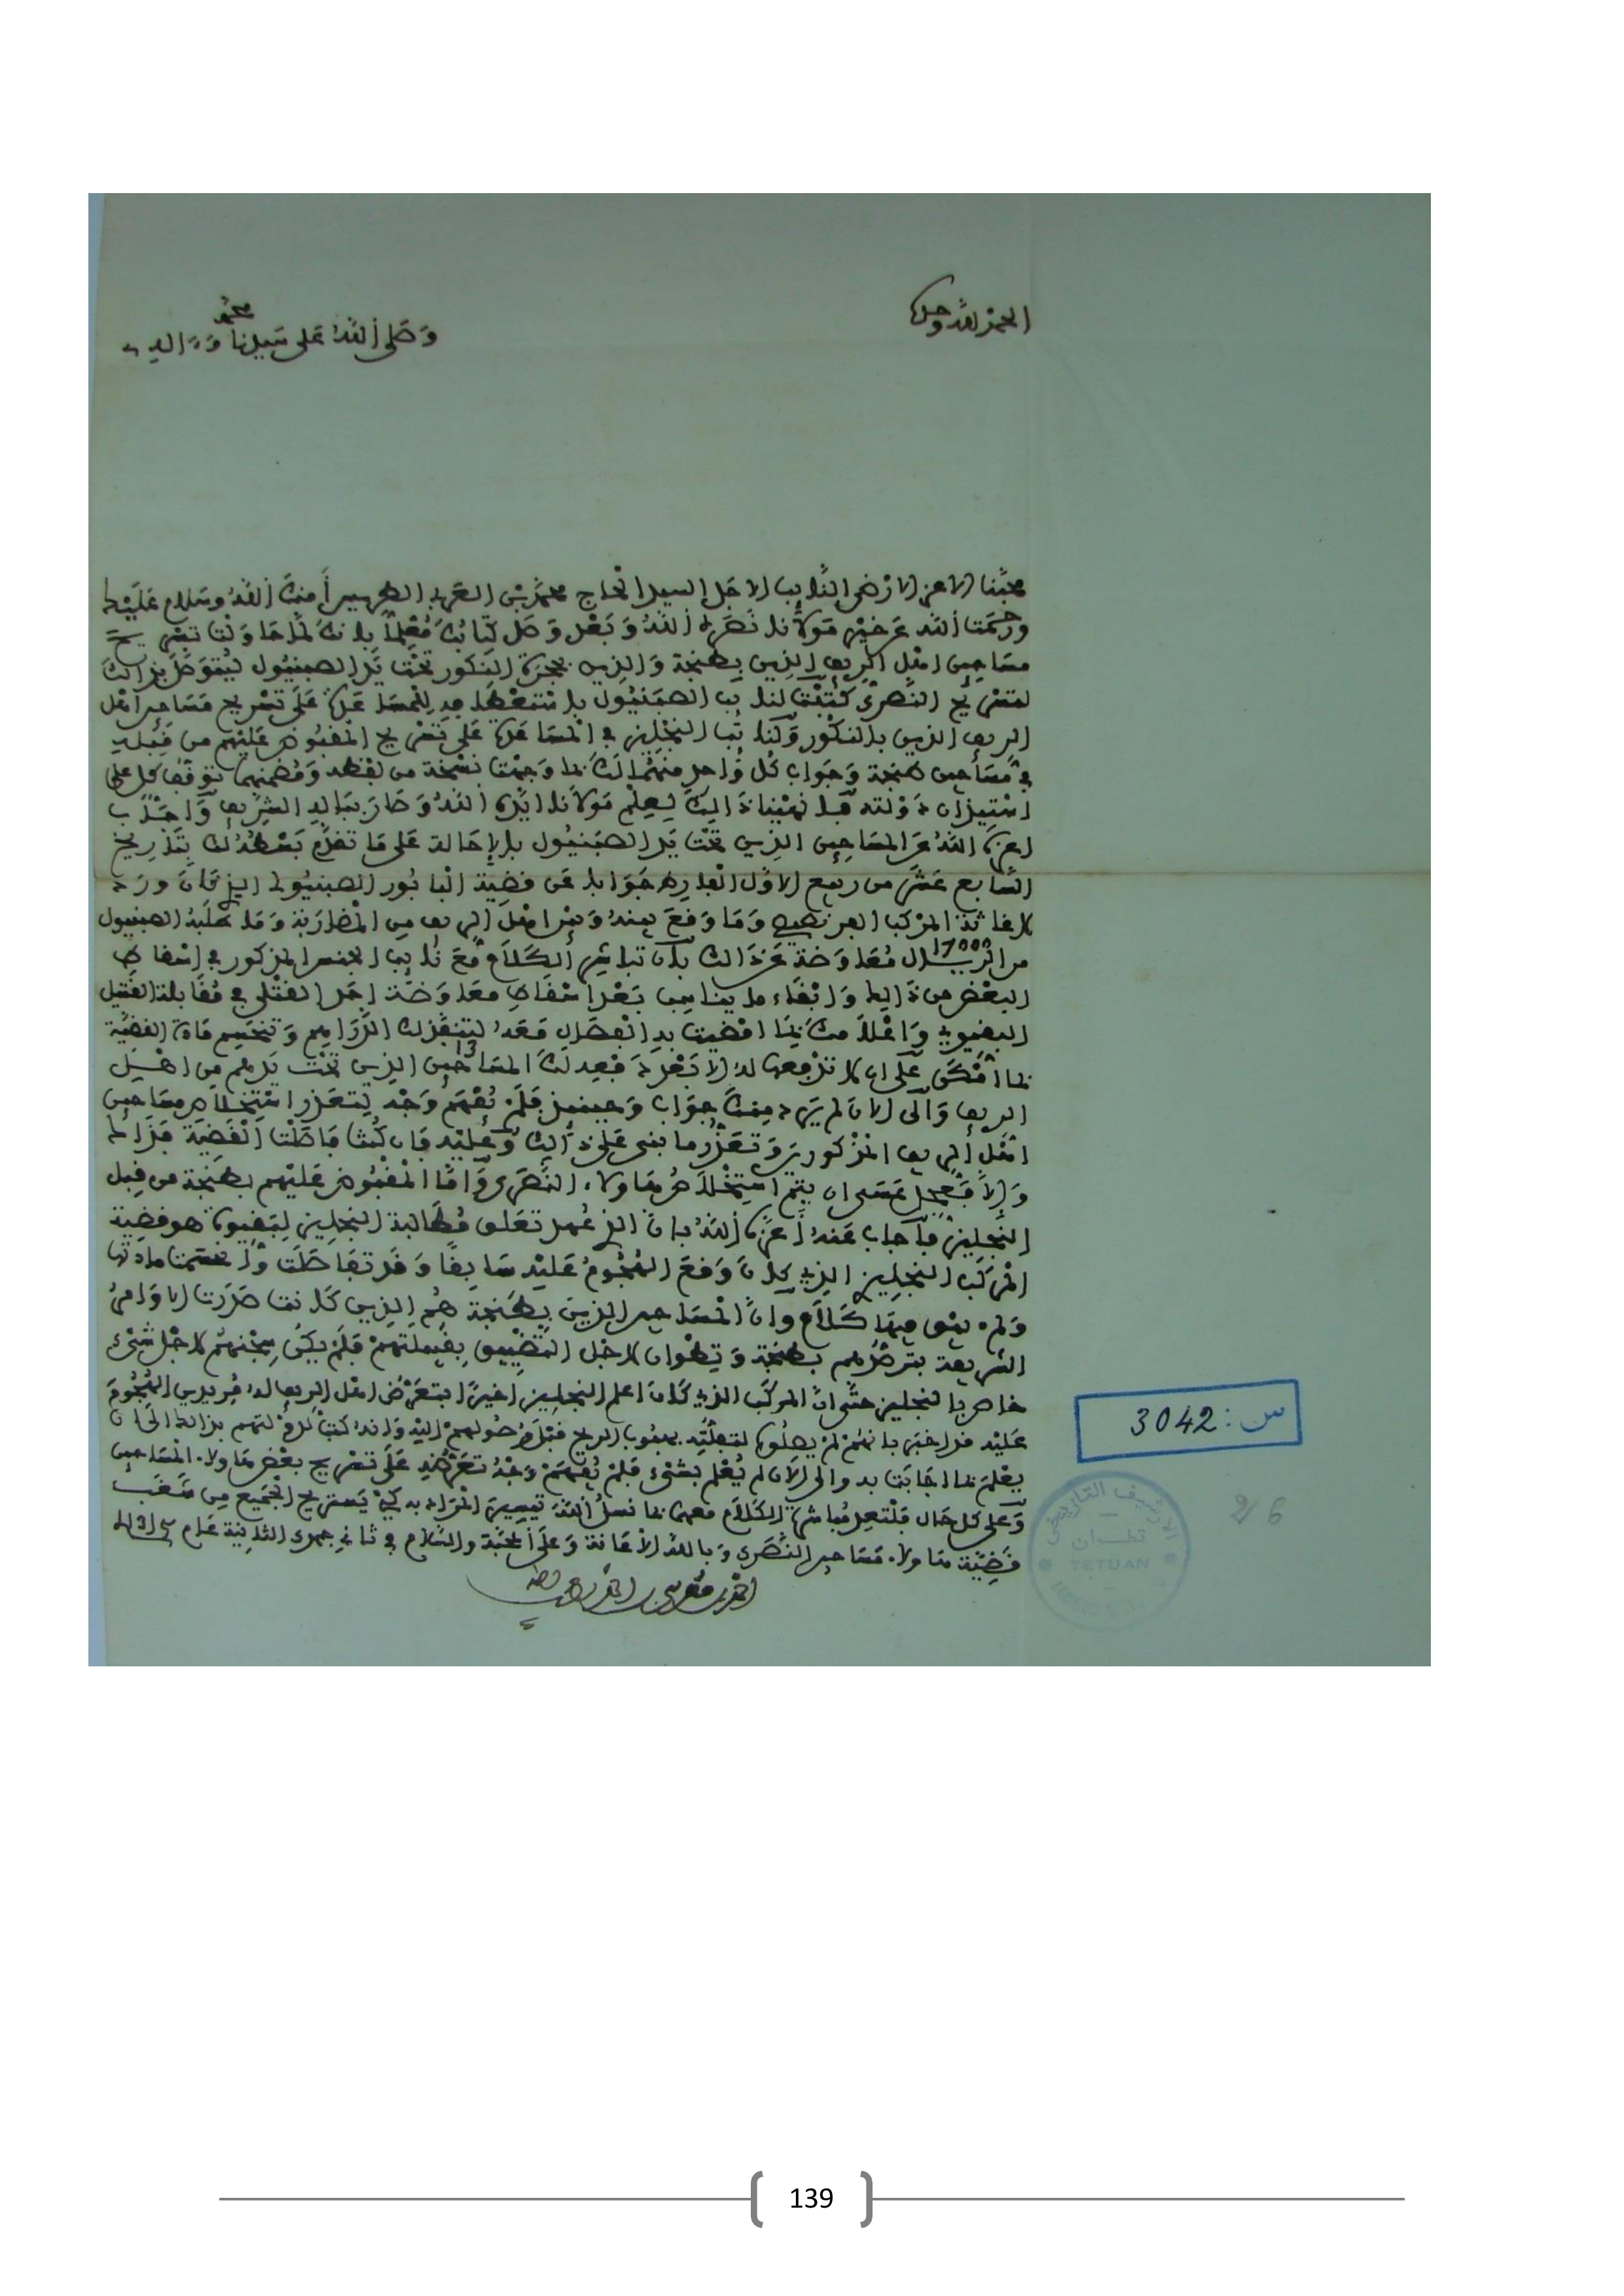 الحمد لله وحده
وصلى الله على سيدنا محمد وءاله
محبنا الاعز الارضى النائب الاجل السيد الحاج محمد بن العربي الطريس أمنك الله وسلام عليك
ورحمت الله عن خير مولانا نصره الله وبعد وصل كتابك معلما بانك لما حاولت تسريح
مساجين اهل الريف الذين بطنجة والذين بحجرة النكور تحت يد الصبنيول ليتوصل بذالك
لتسريح النصرى كتبت لنائب الصبنيول باستعطافه للمساعدة على تسريح مساجين اهل
الريف الذين بالنكور وكنائب النجليز في المساعدة على تسريح المقبوض عليهم من قبله
في مساجين طنجة وجواب كل واحد منهما لك بما وجهت نسخة من لفظه ومضمنهما توقف كل على
استيذان دولته فانهينا ذالك لعلم مولانا ايده الله وصار بباله الشريف واجاب
اعزه الله عن المساجين الذين تحت يد الصبنيول بالاحالة على ما تقدم بسطه لك بتاريخ
السابع عشر من ربيع الاول الفارط جوابا عن قضية البابور الصبنيولي الذي كان ورد
لاغاثة المركب الفرنصيص وما وقع بينه وبين اهل الريف من المضاربة وما طلبه الصبنيول
من الريال 17000 معاوضة عن ذالك بان تباشر الكلام مع نائب الجنس المذكور في اسقاط
البعض من ذالك وابقاء ما يناسب بعد اسقاط معاوضة اجل القتلى في مقابلة القتيل
البقيوي واعلامك بما افضيت به انفصال معه لتنفذ لك الدراهم وتنحسم مادة القضية
بما امكن على ان لا تدفعها له الا بعد دفعه لك المساجين 13 الذين تحت يدهم من اهل
الريف والى الان لم يرد منك جواب وحينئذ فلم يفهم وجه لتعذر استخلاص مساجين
اهل الريف المذكورين وتعذر ما بنى على ذالك وعليه فان كنت فاصلت القضية فذالك
والا فعجل عسى ان يتم استخلاص هاولاء النصرى واما المقبوض عليهم بطنجة من قبل
النجليز فاجاب عنه أعزه الله بان الذي عهد تعلق مطالبة النجليز لبقيوة هو قضية
المركب النجليز الذي كان وقع الهجوم عليه سابقا وقد تفاصلت وانحسمت مادتها
ولم يبق فيها كلام وان المساجين الذين بطنجة هم الذين كانت صدرت الاوامر
الشريفة بترصدهم بطنجة وتطوان لاجل التضييق بقبيلتهم فلم يكن سجنهم لاجل شيء
خاص بالنجليز حتى ان المركب الذي كان اعلم النجليز اخيرا بتعرض اهل الريف له مريدين الهجوم
عليه قد اخبر بانهم لم يصلوه لتفلته بهبوب الريح قبل وصولهم اليه وانه كتب لدولتهم بذالك الى ان
يعلم بما اجابت به والى الان لم يعلم بشيء فلم يفهم وجه تعرضه على تسريح بعض هاولاء المساجين
وعلى كل حال فلتعد مباشرة الكلام معهما بما نسئل الله تيسير المراد به كي يستريح الجميع من شغب
قضية هاولاء مساجين النصرى وبالله الاعانة وعلى المحبة والسلام في ثاني جمدى الثانية عام
احمد بن موسى بن احمد لطف الله به
س: 3042
26
الارشيف التاريخي
تطوان
TETUAN
139